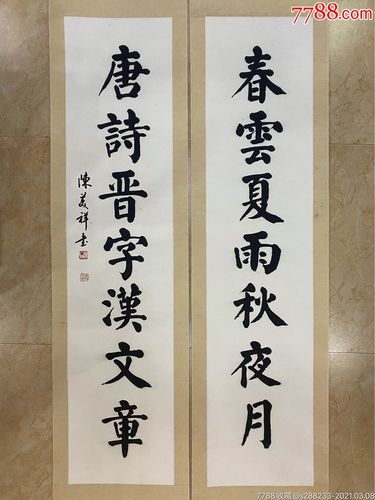 7788.com
春雲夏雨秋夜月
唐詩晋字漢文章
陳美祥书
7788收藏@s288233-2021.03.08